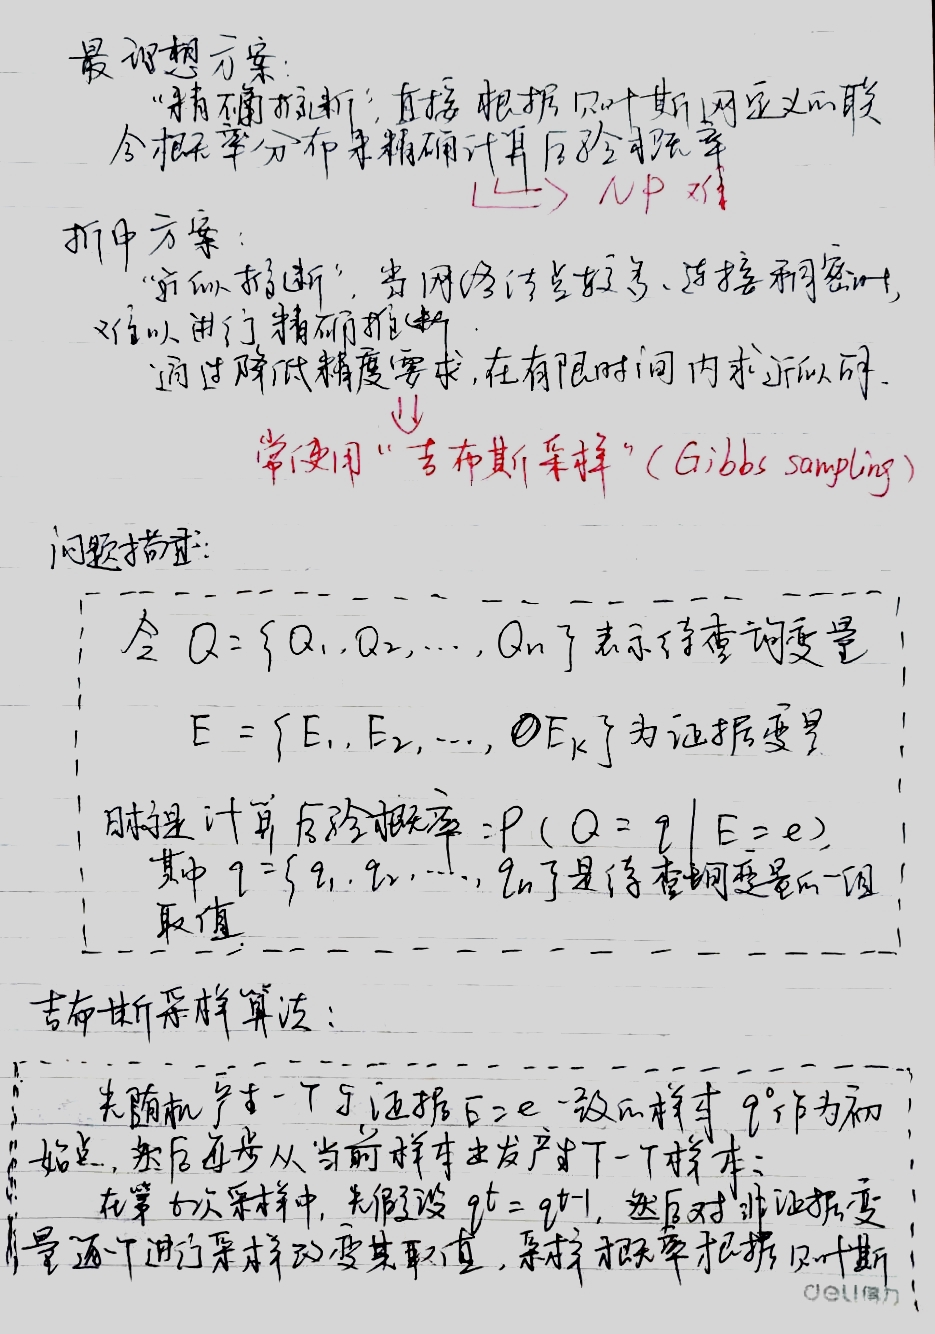 最理想方案:
“精确推断”,直接根据贝叶斯网定义的联
合概率分布来精确计算后验概率
NP难
折中方案:
“近似推断”,当网络结点较多、连接稠密时,
难以进行精确推断.
通过降低精度要求,在有限时间内求近似解.
常使用“吉布斯采样”(Gibbs sampling)
问题描述:
令 Q={Q₁,Q₂,…,Qn}表示待查询变量
E={E₁,E₂,…,Eₖ}为证据变量
目标是计算后验概率:P(Q=q|E=e),
其中q={q₁,q₂,…,qn}是待查询变量的一组
取值
吉布斯采样算法:
先随机产生一个与证据E=e一致的样本q⁰作为初
始点,然后每步从当前样本出发产生下一个样本:
在第t次采样中,先假设qᵗ=qᵗ⁻¹,然后对非证据变
量逐个进行采样改变其取值,采样概率根据贝叶斯
deli得力